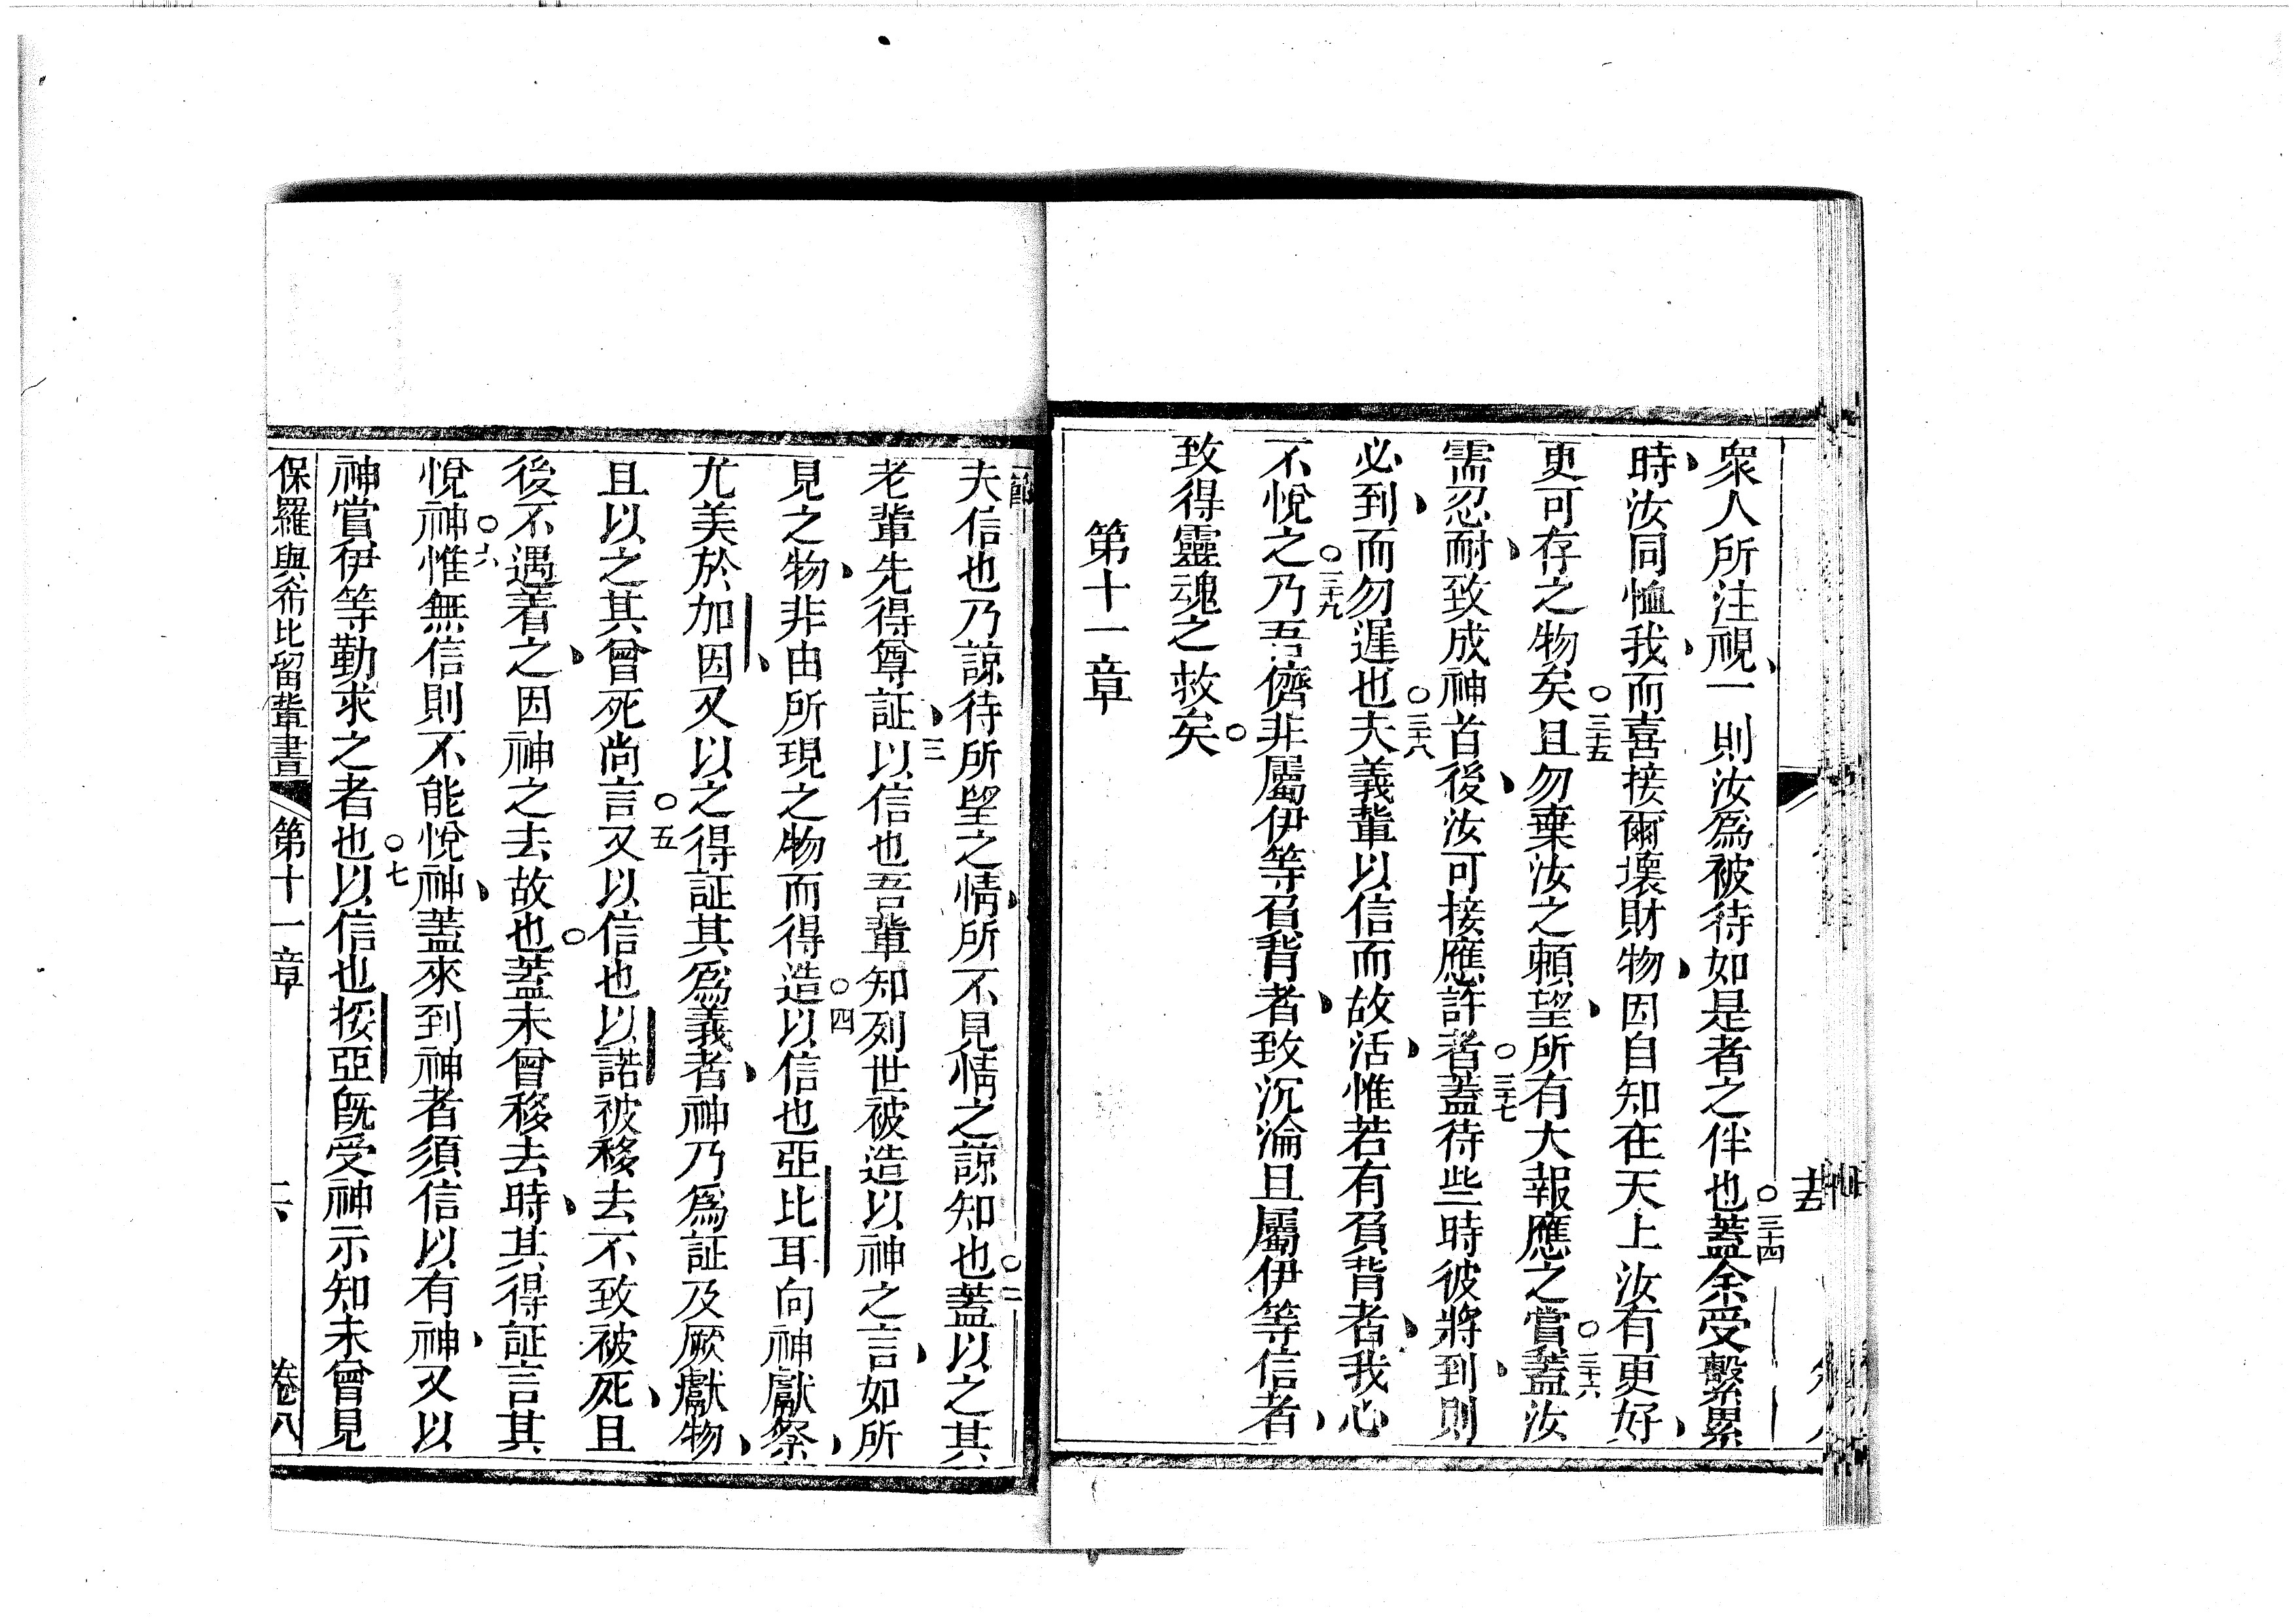 衆人所注視、一則汝爲被待如是者之伴也○三十四蓋余受繫累
時、汝同恤我、而喜接爾壞財物、因自知在天上汝有更好、
更可存之物矣○三十五且勿棄汝之賴望、所有大報應之賞○三十六蓋汝
需忍耐、致成神首後、汝可接應許者○三十七蓋待些時彼將到、則
必到、而勿遲也○三十八夫義輩以信而故活、惟若有負背者、我心
不悅之○三十九乃吾儕非屬伊等負背者、致沉淪且屬伊等信者、
致得靈魂之救矣○
第十一章
節一
夫信也乃諒待所望之情、所不見情之諒知也○二蓋以之其
老輩先得尊証、○三以信也吾輩知列世被造以神之言、如所
見之物、非由所現之物而得造○四以信也亞比耳向神獻祭、
尤美於加因、又以之得証其爲義者、神乃爲証及厥獻物、
且以之其曾死尚言○五又以信也以諾被移去不致被死、且
後不遇着之、因神之去故也○蓋未曾移去時、其得証言其
悅神○六惟無信則不能悅神、蓋來到神者須信以有神、又以
神賞伊等勤求之者也○七以信也挼亞旣受神示知未曾見
保羅與希比留輩書 第十一章 卷八